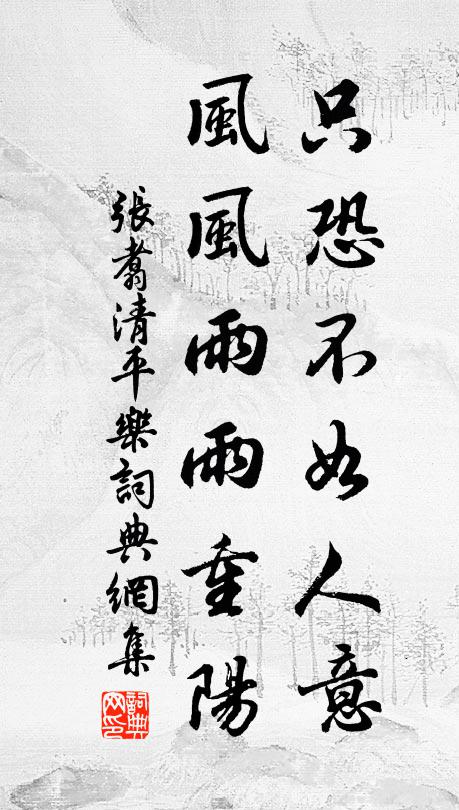 只恐不如人意
風風雨雨重陽
張翥清平樂詞典網集
詞典网印